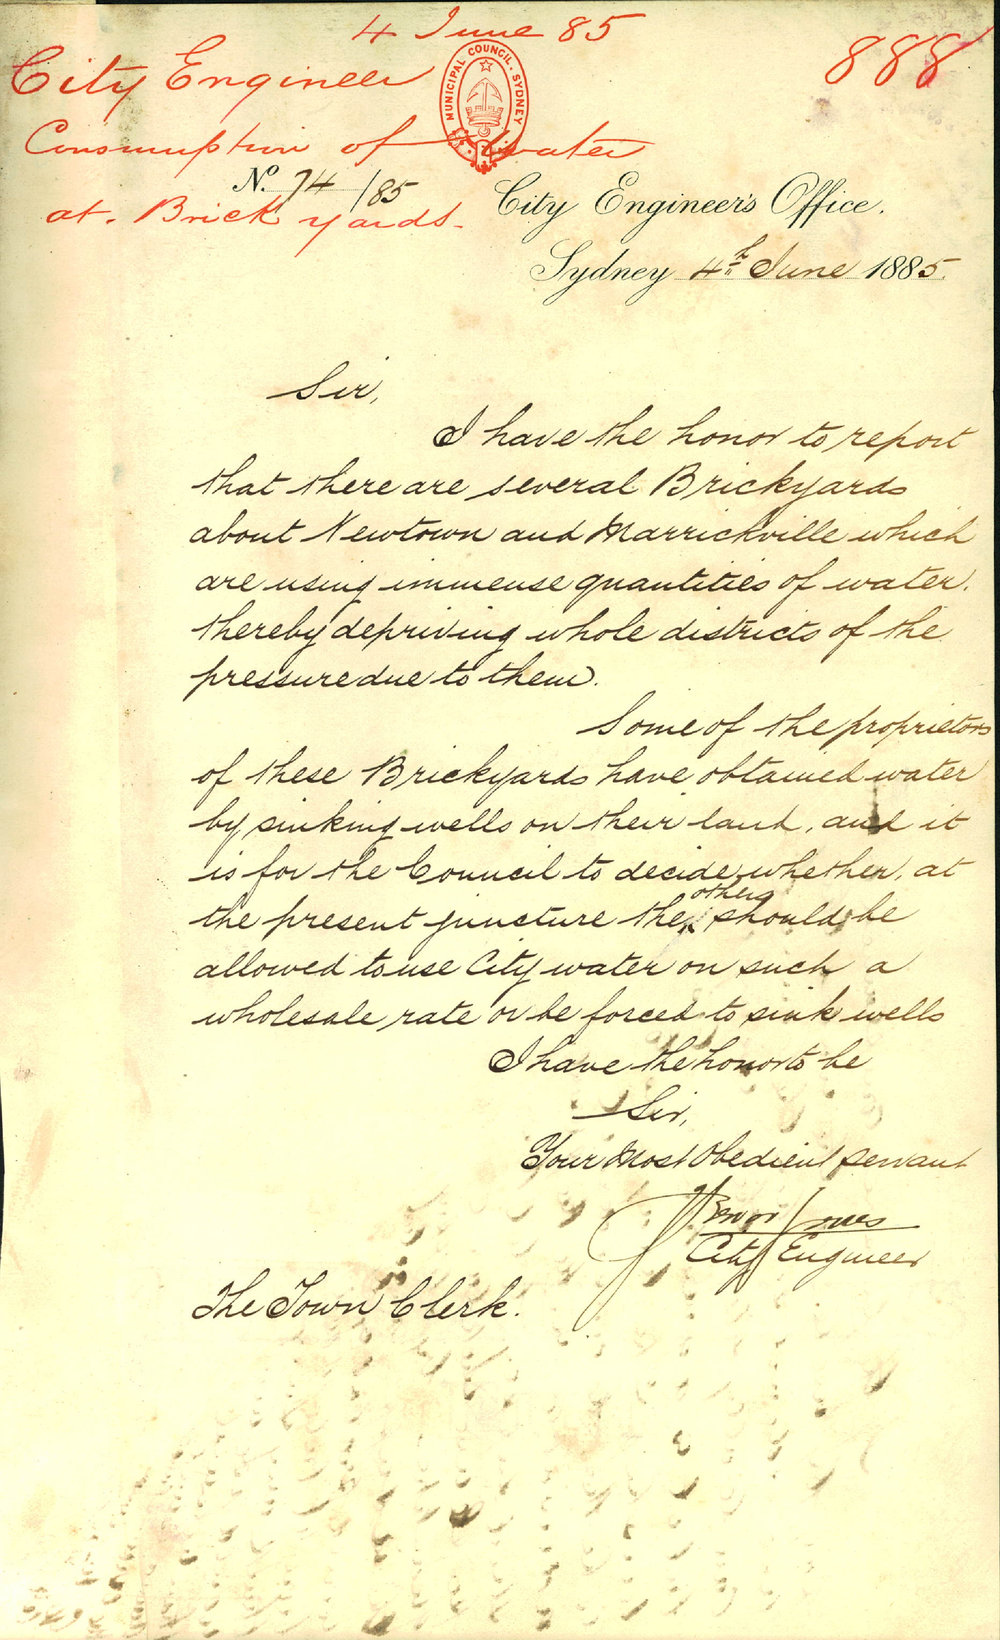 4 June 85
888
City Engineer
Consumption of Water
at. Brick yards.
MUNICIPAL COUNCIL. SYDNEY
No. 74/85
City Engineer's Office.
Sydney 4th June 1885.
Sir,
I have the honor to report
that there are several Brickyards
about Newtown and Marrickville which
are using immense quantities of water.
thereby depriving whole districts of the
pressure due to them.
Some of the proprietors
of these Brickyards have obtained water
by sinking wells on their land, and it
is for the Council to decide whether, at
the present juncture the others should be
allowed to use City water on such a
wholesale rate or be forced to sink wells
I have the honor to be
Sir,
Your Most Obedient servant
Trevor Jones
City Engineer
The Town Clerk.